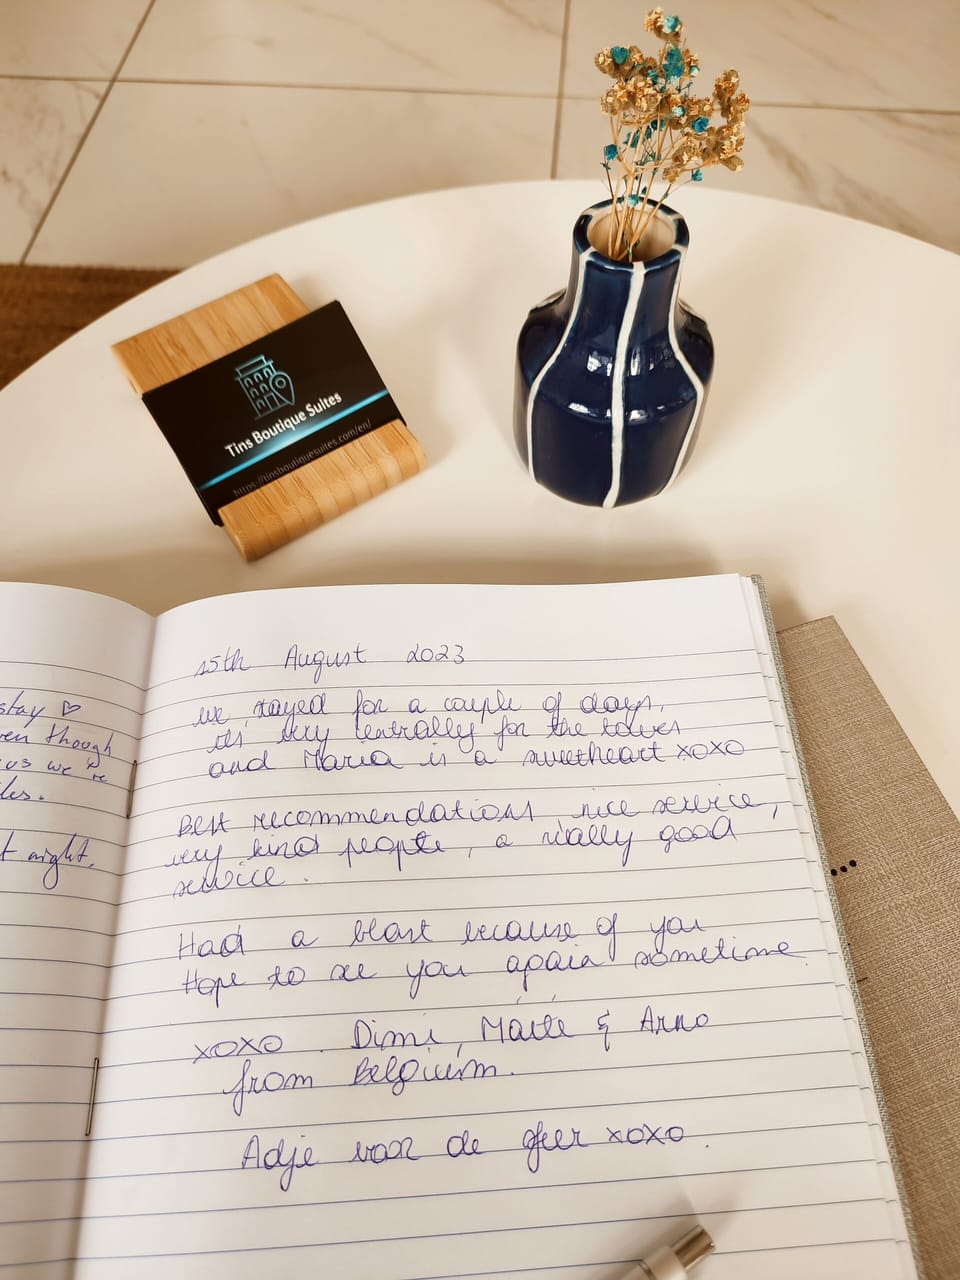 Tins Boutique Suites
https://tinsboutiquesuites.com/en/
stay ♡
though
us we're
night,
15th August 2023
we stayed for a couple of days,
its very centrally for the
and Maria is a sweetheart xoxo
Best recommendations nice service,
very kind people, a really good
service.
Had a blast because of you
Hope to see you again sometime
xoxo. Dimi, Maité & Arno
from Belgium.
Adje voor de sfeer xoxo.